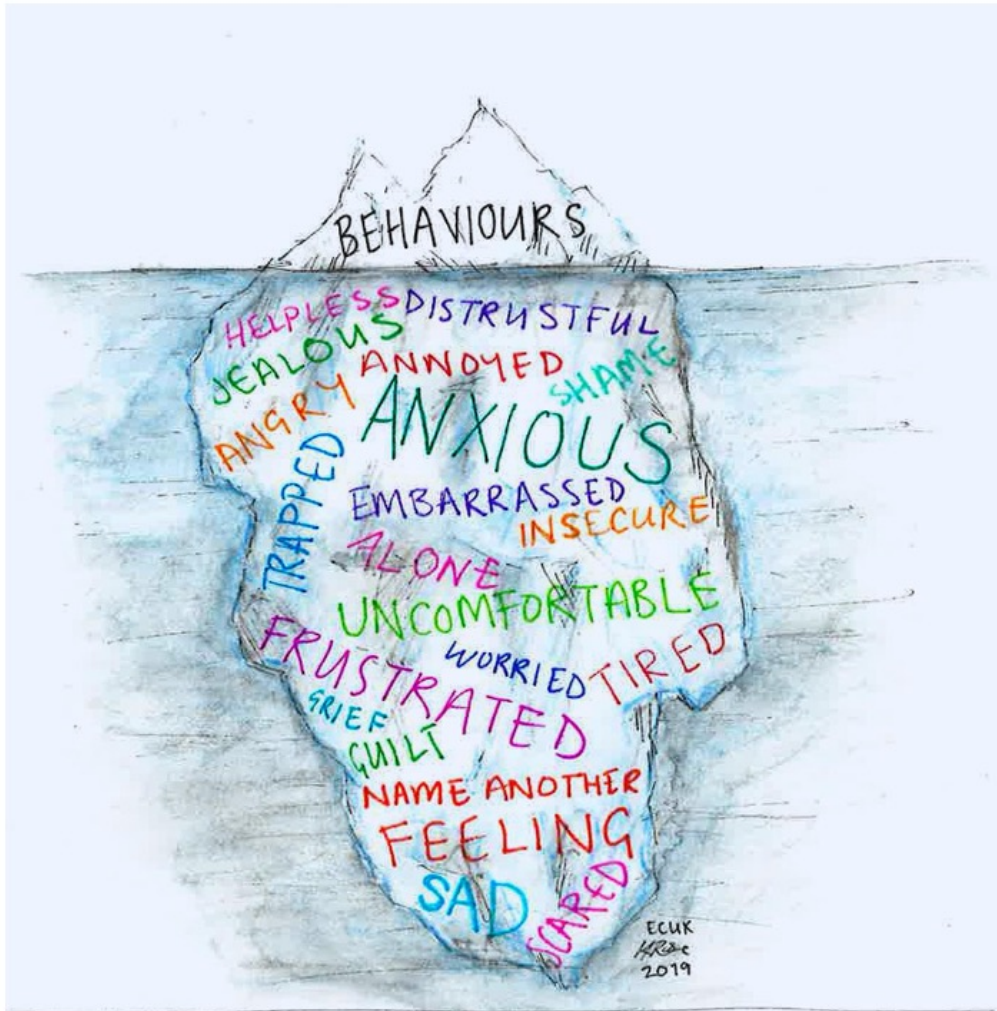 BEHAVIOURS
HELPLESS DISTRUSTFUL
JEALOUS
ANNOYED
SHAME
ANGRY
ANXIOUS
TRAPPED
EMBARRASSED
INSECURE
ALONE
UNCOMFORTABLE
FRUSTRATED
WORRIED
TIRED
GRIEF
GUILT
NAME ANOTHER
FEELING
SAD
SCARED
ECUK
2019